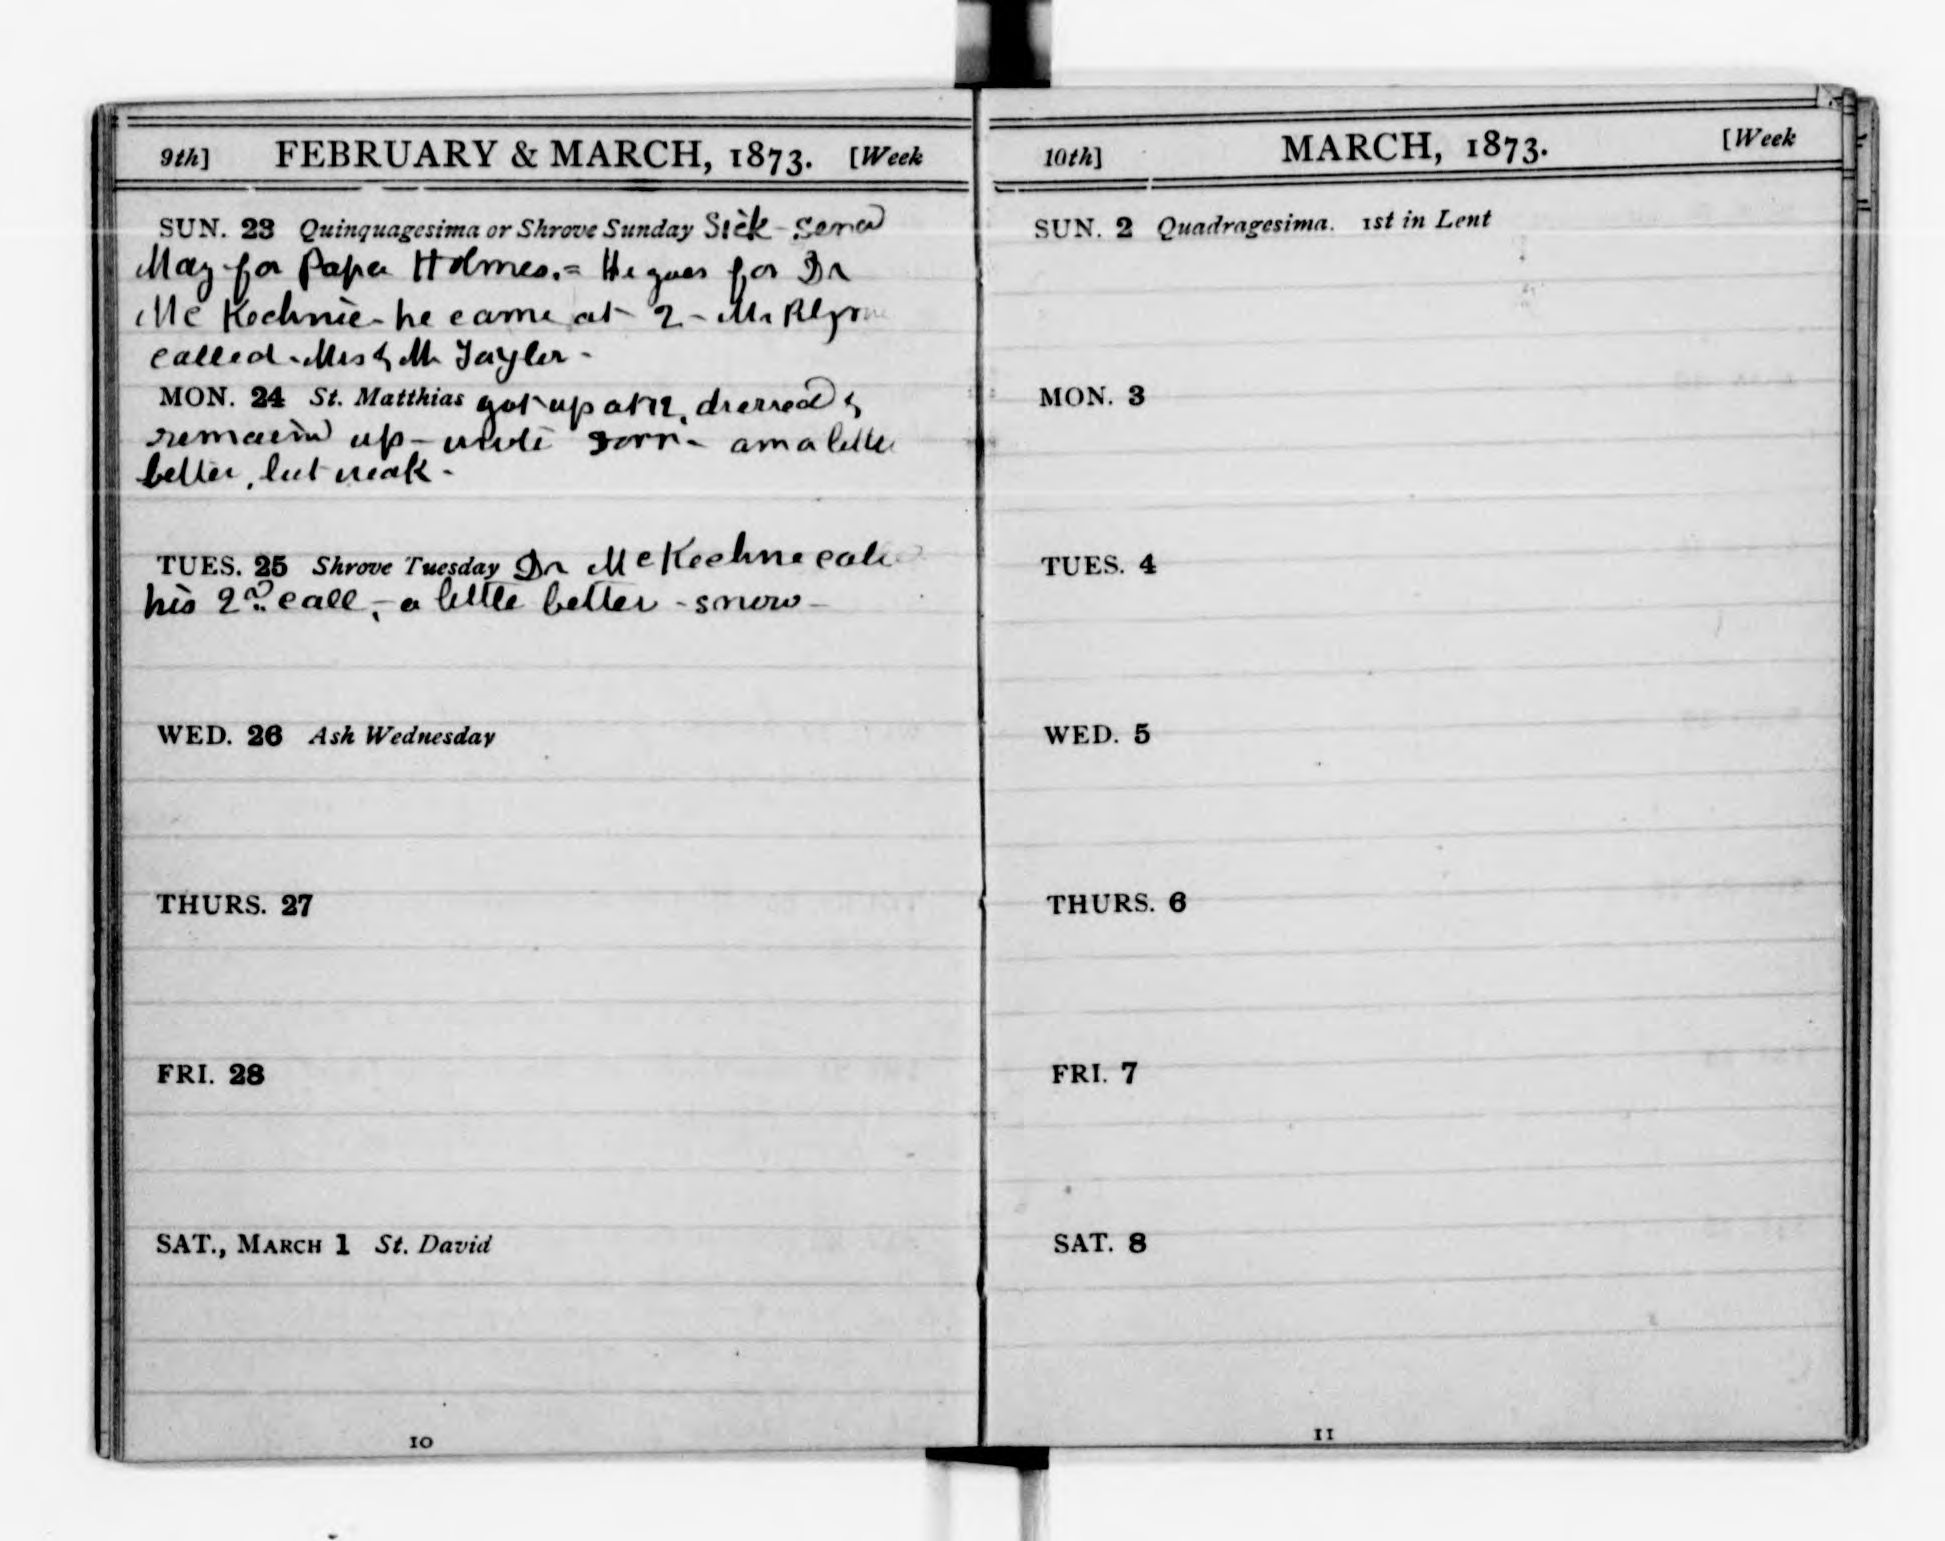 9th] FEBRUARY & MARCH, 1873. [Week
SUN. 23 Quinquagesima or Shrove Sunday Sick - Send
May for Papa Holmes. = He goes for Dr
McKechnie - he came at 2 - Mr
called - Mrs & Mr Taylor -
MON. 24 St. Matthias got up at 12, dressed &
remained up - wrote - am a little
better, but weak -
TUES. 25 Shrove Tuesday Dr McKechnie
his 2nd call, - a little better - snow -
WED. 26 Ash Wednesday
THURS. 27
FRI. 28
SAT., MARCH 1 St. David
10
10th] MARCH, 1873. [Week
SUN. 2 Quadragesima. 1st in Lent
MON. 3
TUES. 4
WED. 5
THURS. 6
FRI. 7
SAT. 8
11